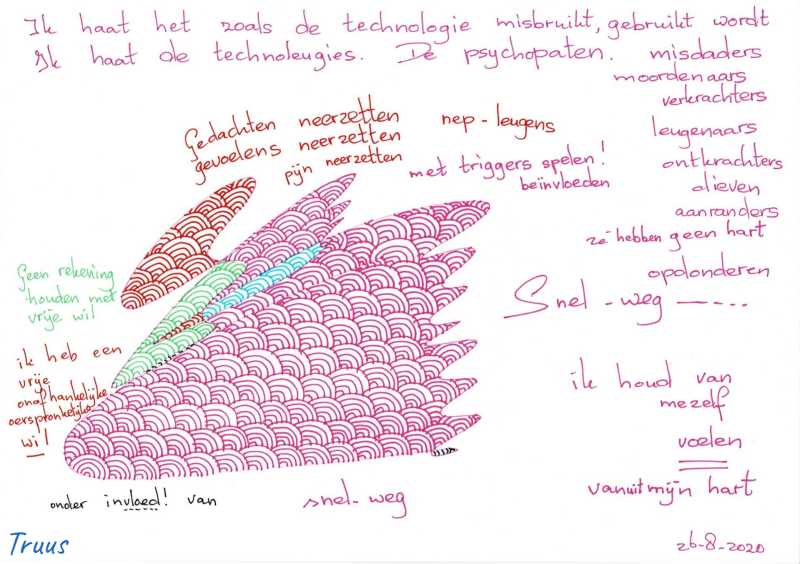 Ik haat het zoals de technologie misbruikt, gebruikt wordt
Ik haat de technoleugies. De psychopaten. misdaders
moordenaars
verkrachters
leugenaars
ontkrachters
dieven
aanranders
ze hebben geen hart
opdonderen
Gedachten neerzetten
gevoelens neerzetten
pijn neerzetten
nep - leugens
met triggers spelen!
beïnvloeden
Geen rekening
houden met
vrije wil
ik heb een
vrije
onafhankelijke
oerspronkelijke
wil
Snel - weg
ik houd van
mezelf
voelen
vanuit mijn hart
onder invloed! van
snel-weg
Truus
26-8-2020